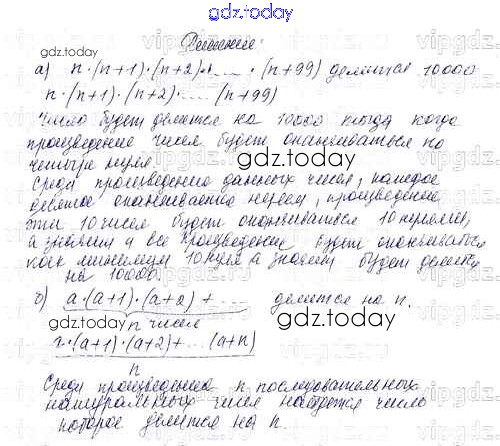 gdz.today
Решение:
а) n·(n+1)·(n+2)·.... ·(n+99) делится 10000
gdz.today
n·(n+1)·(n+2)·.... (n+99)
Число будет делится на 10000 тогда когда
произведение чисел будет оканчиваться на
четыре нуля.
gdz.today
Среди произведение данных чисел, каждое
десятое оканчивается нулем, произведение
эти 10 чисел будет оканчиваться 10 нулями,
а значит и все произведение будет оканчиваться
как минимум 10 нул а значит будет делится
на 10000.
б) a·(a+1)·(a+2)+.... делится на n.
gdz.today
n чисел
gdz.today
·(a+1)·(a+2)+...(a+n)
n
Среди произведения n последовательных
натуральных чисел найдется число
которое делится на n.
gdz.today